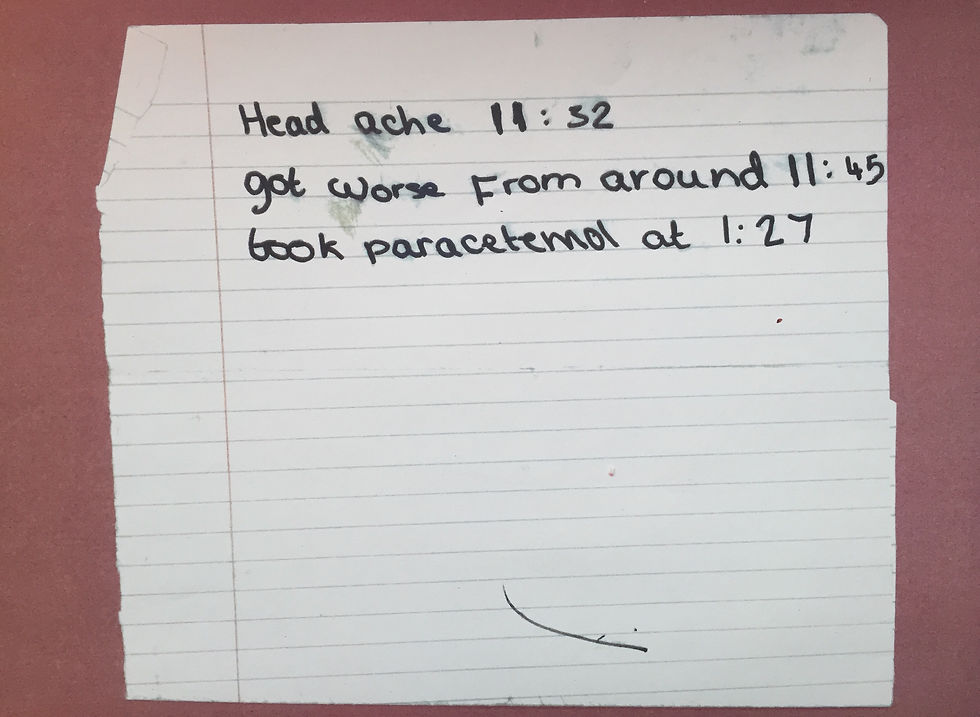 Head ache 11:32
got worse From around 11:45
took paracetemol at 1:27